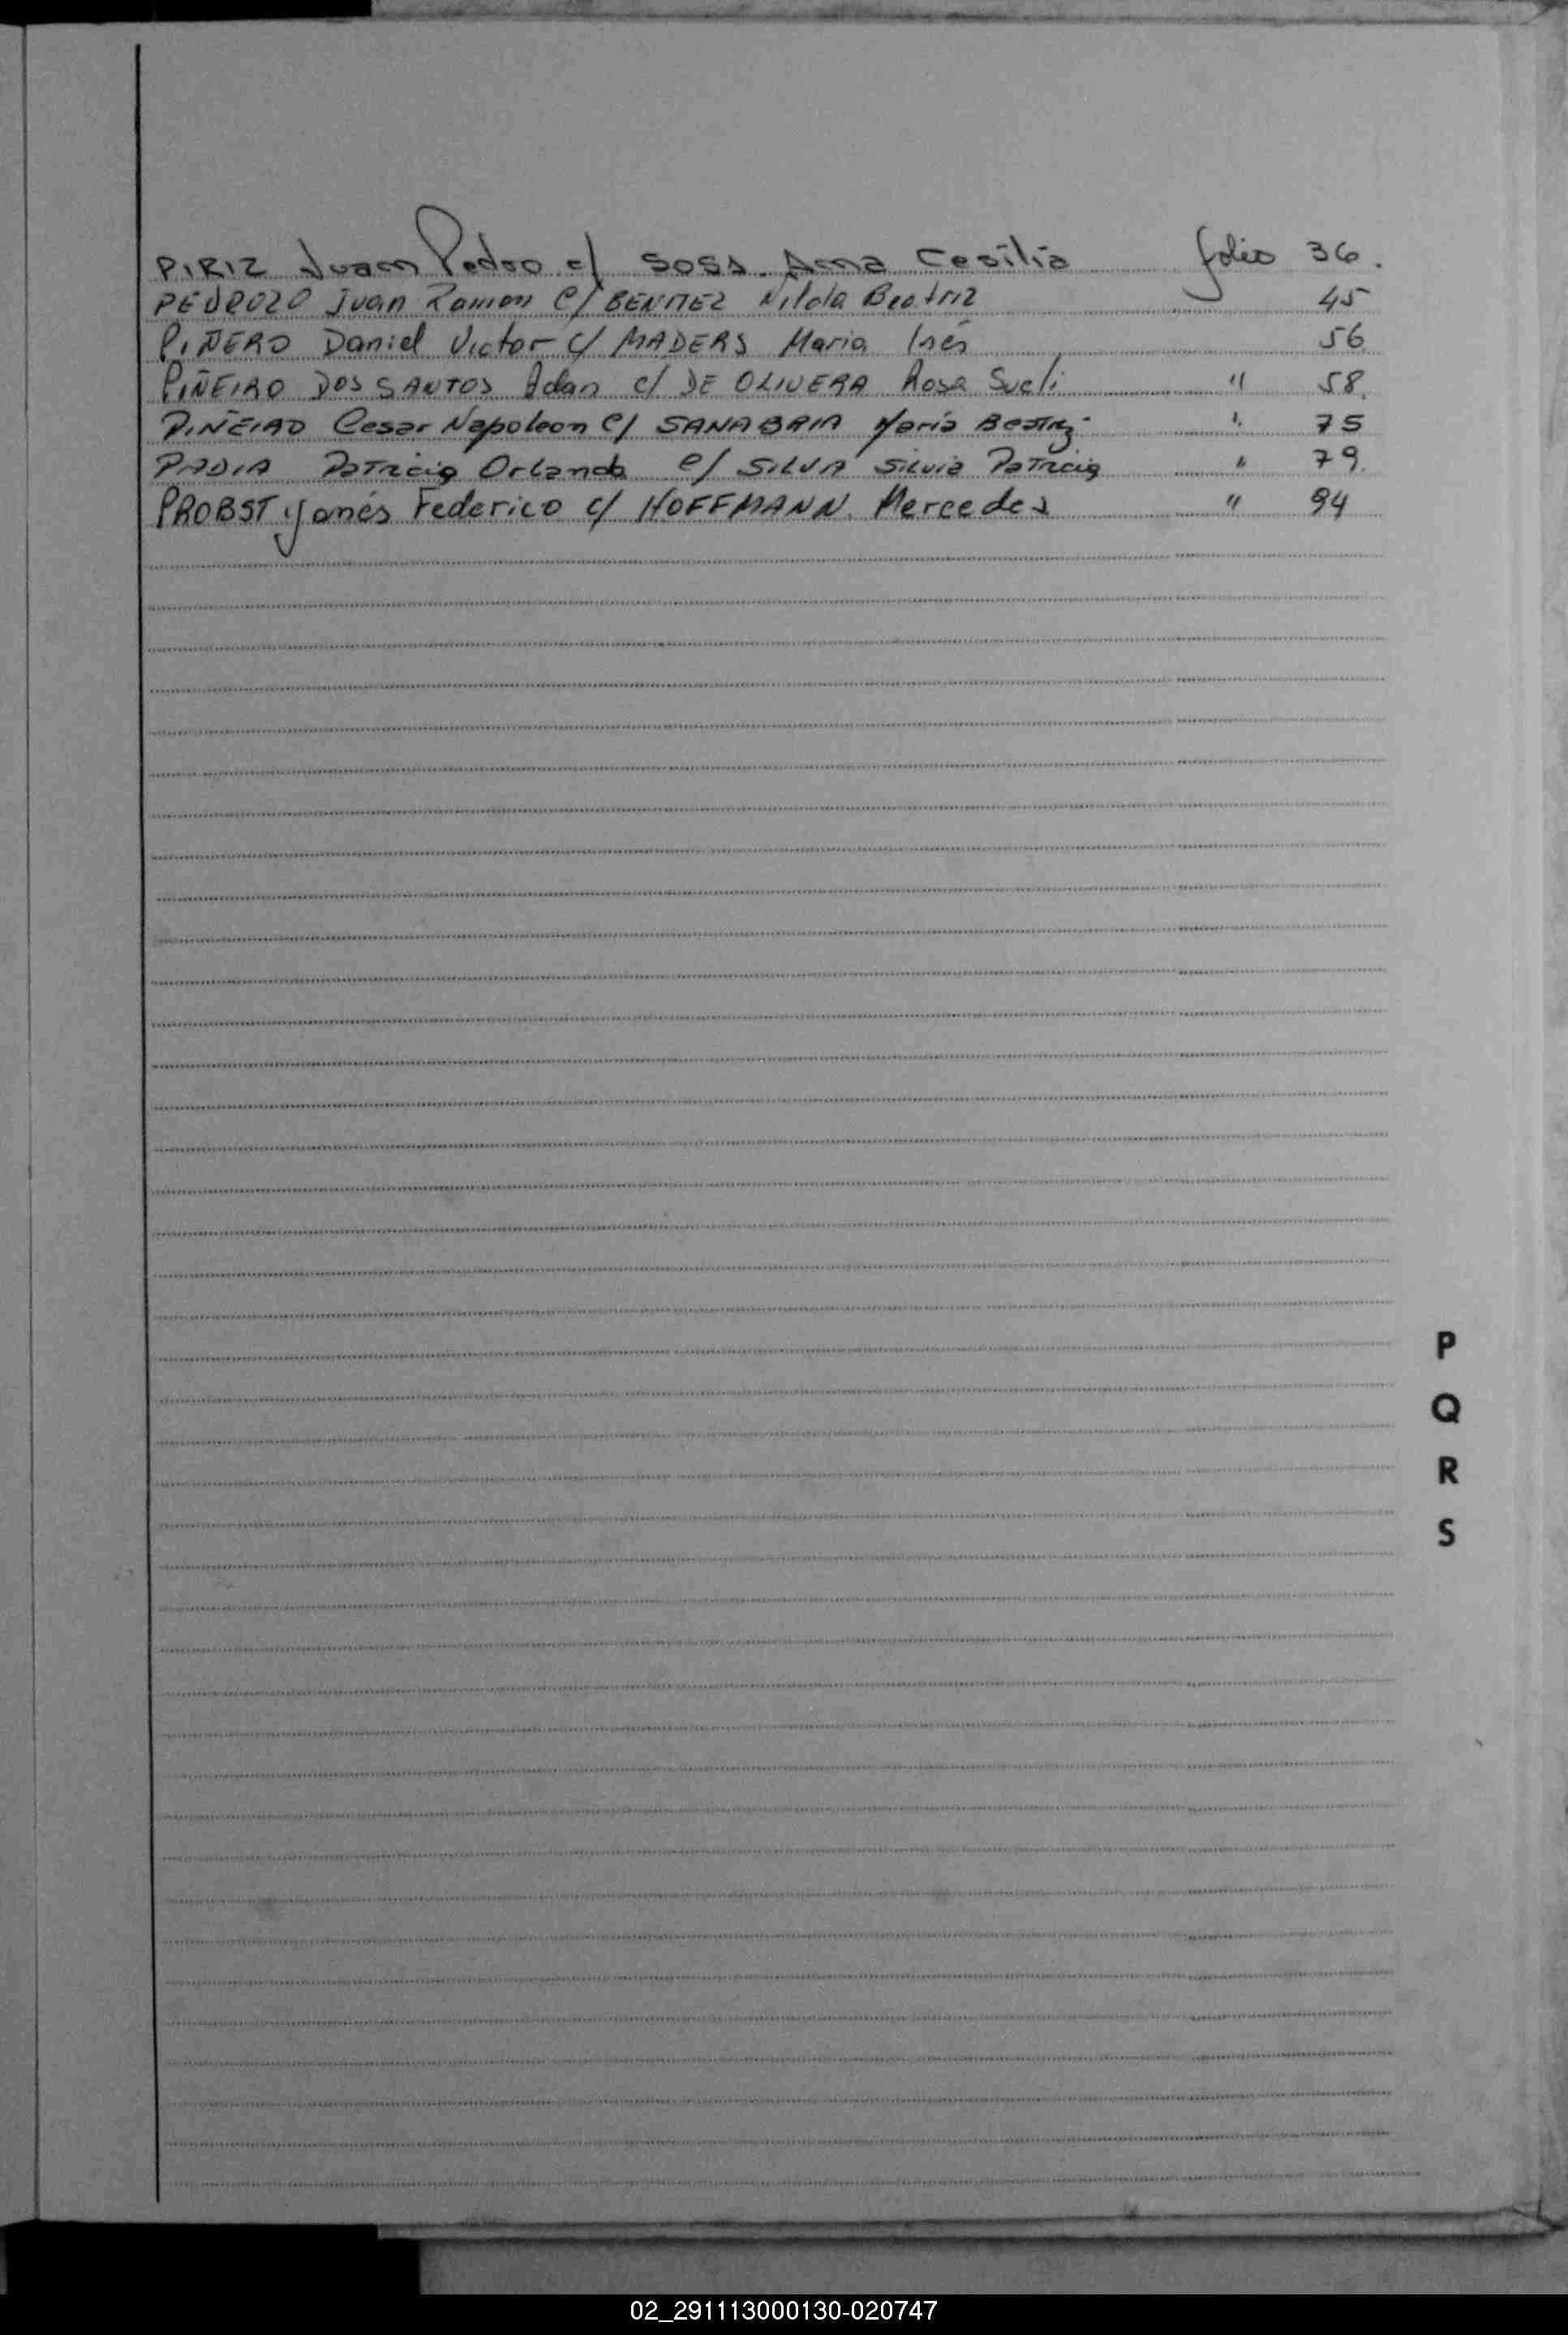 PIRIZ Juan Pedro c/ SOSA Ana Cesilia folio 36.
PEDROZO Juan Ramon c/ BENITEZ Nilda Beatriz 45
PIÑERO Daniel Victor c/ MADERS Maria Inés 56
PIÑEIRO DOS SANTOS Adan c/ DE OLIVERA Rosa Sueli " 58.
PIÑEIRO Cesar Napoleon c/ SANABRIA María Beatriz " 75
PADIA Orlando c/ SILVA Silvia Patricia " 79.
PROBST Federico c/ HOFFMANN Mercedes " 94
P
Q
R
S
02_291113000130-020747